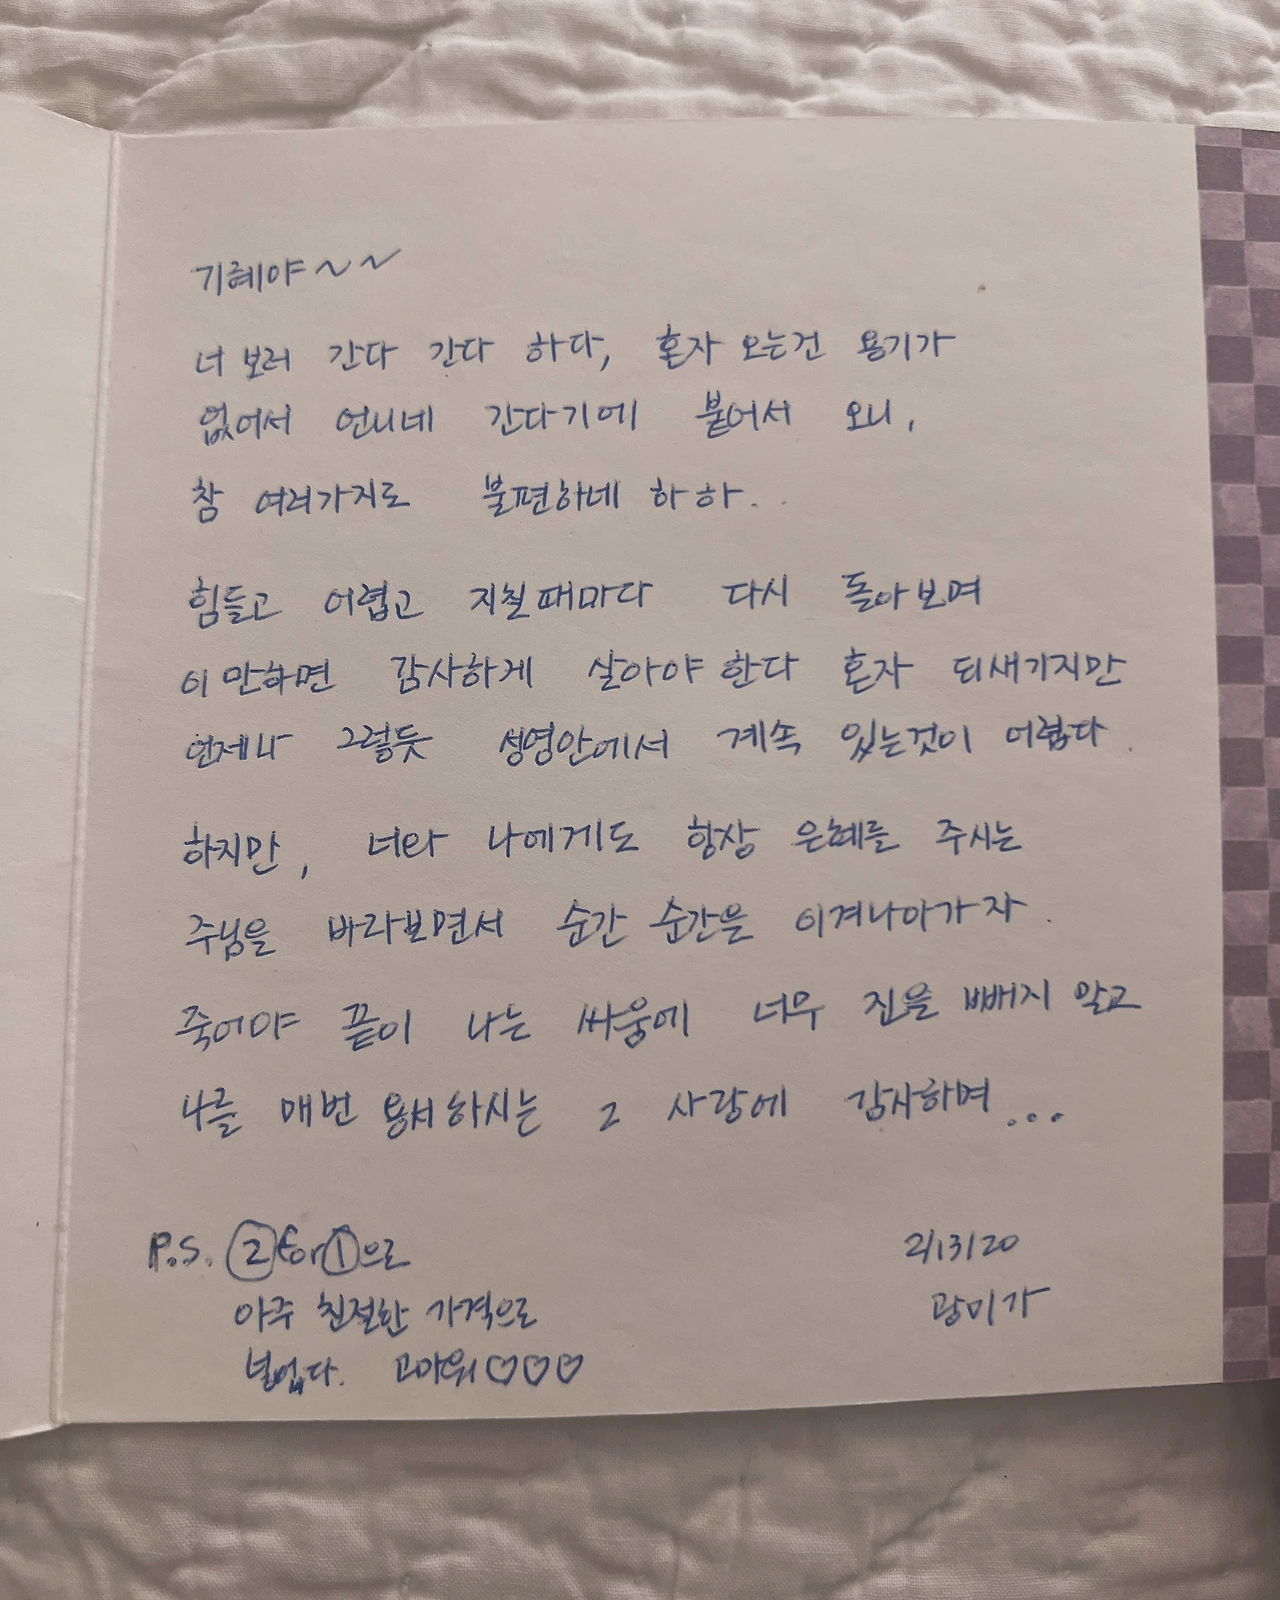 기혜야~~
너 보러 간다 간다 하다, 혼자 오는건 용기가
없어서 언니네 간다기에 붙어서 오니,
참 여러가지로 불편하네 하하..
힘들고 어렵고 지칠때마다 다시 돌아보며
이만하면 감사하게 살아야 한다 혼자 되새기지만
언제나 그렇듯 성령안에서 계속 있는것이 어렵다.
하지만, 너와 나에게도 항상 은혜를 주시는
주님을 바라보면서 순간 순간을 이겨나아가자.
죽어야 끝이 나는 싸움에 너무 진을 빼지 말고
나를 매번 용서하시는 그 사랑에 감사하며...
P.S. ②for①으로
아주 친절한 가격으로
널업다. 고마워♡♡♡
2/13/20
광미가